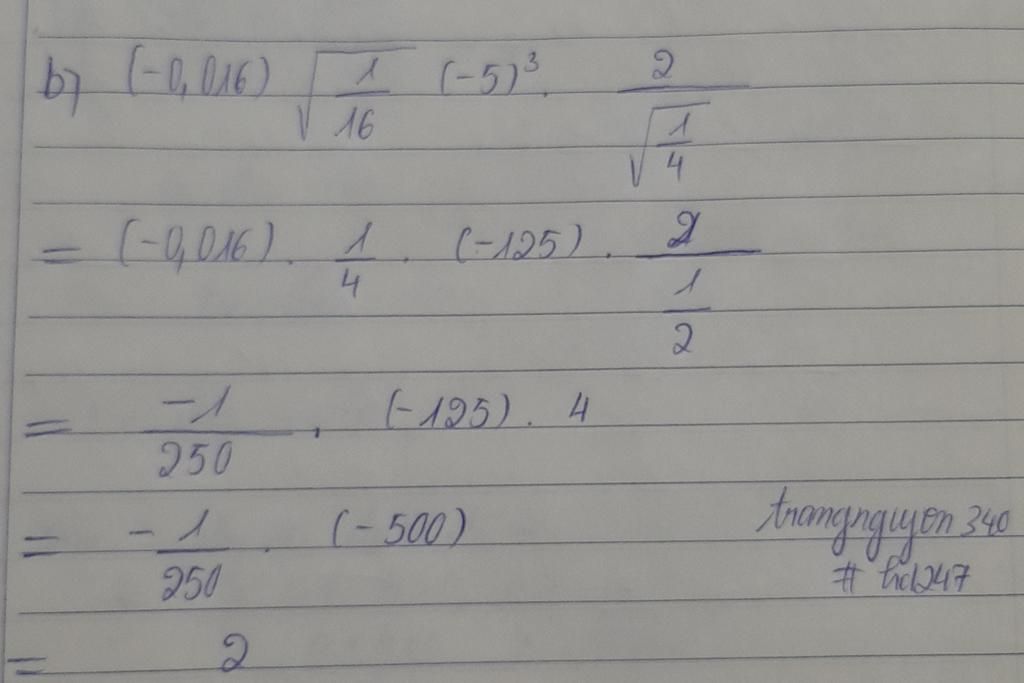 b) (-0,016) √(1/16) (-5)³ . 2/√(1/4)
= (-0,016) . 1/4 . (-125) . 2/(1/2)
= -1/250 . (-125) . 4
= -1/250 . (-500)
trangnguyen340
# hd247
= 2